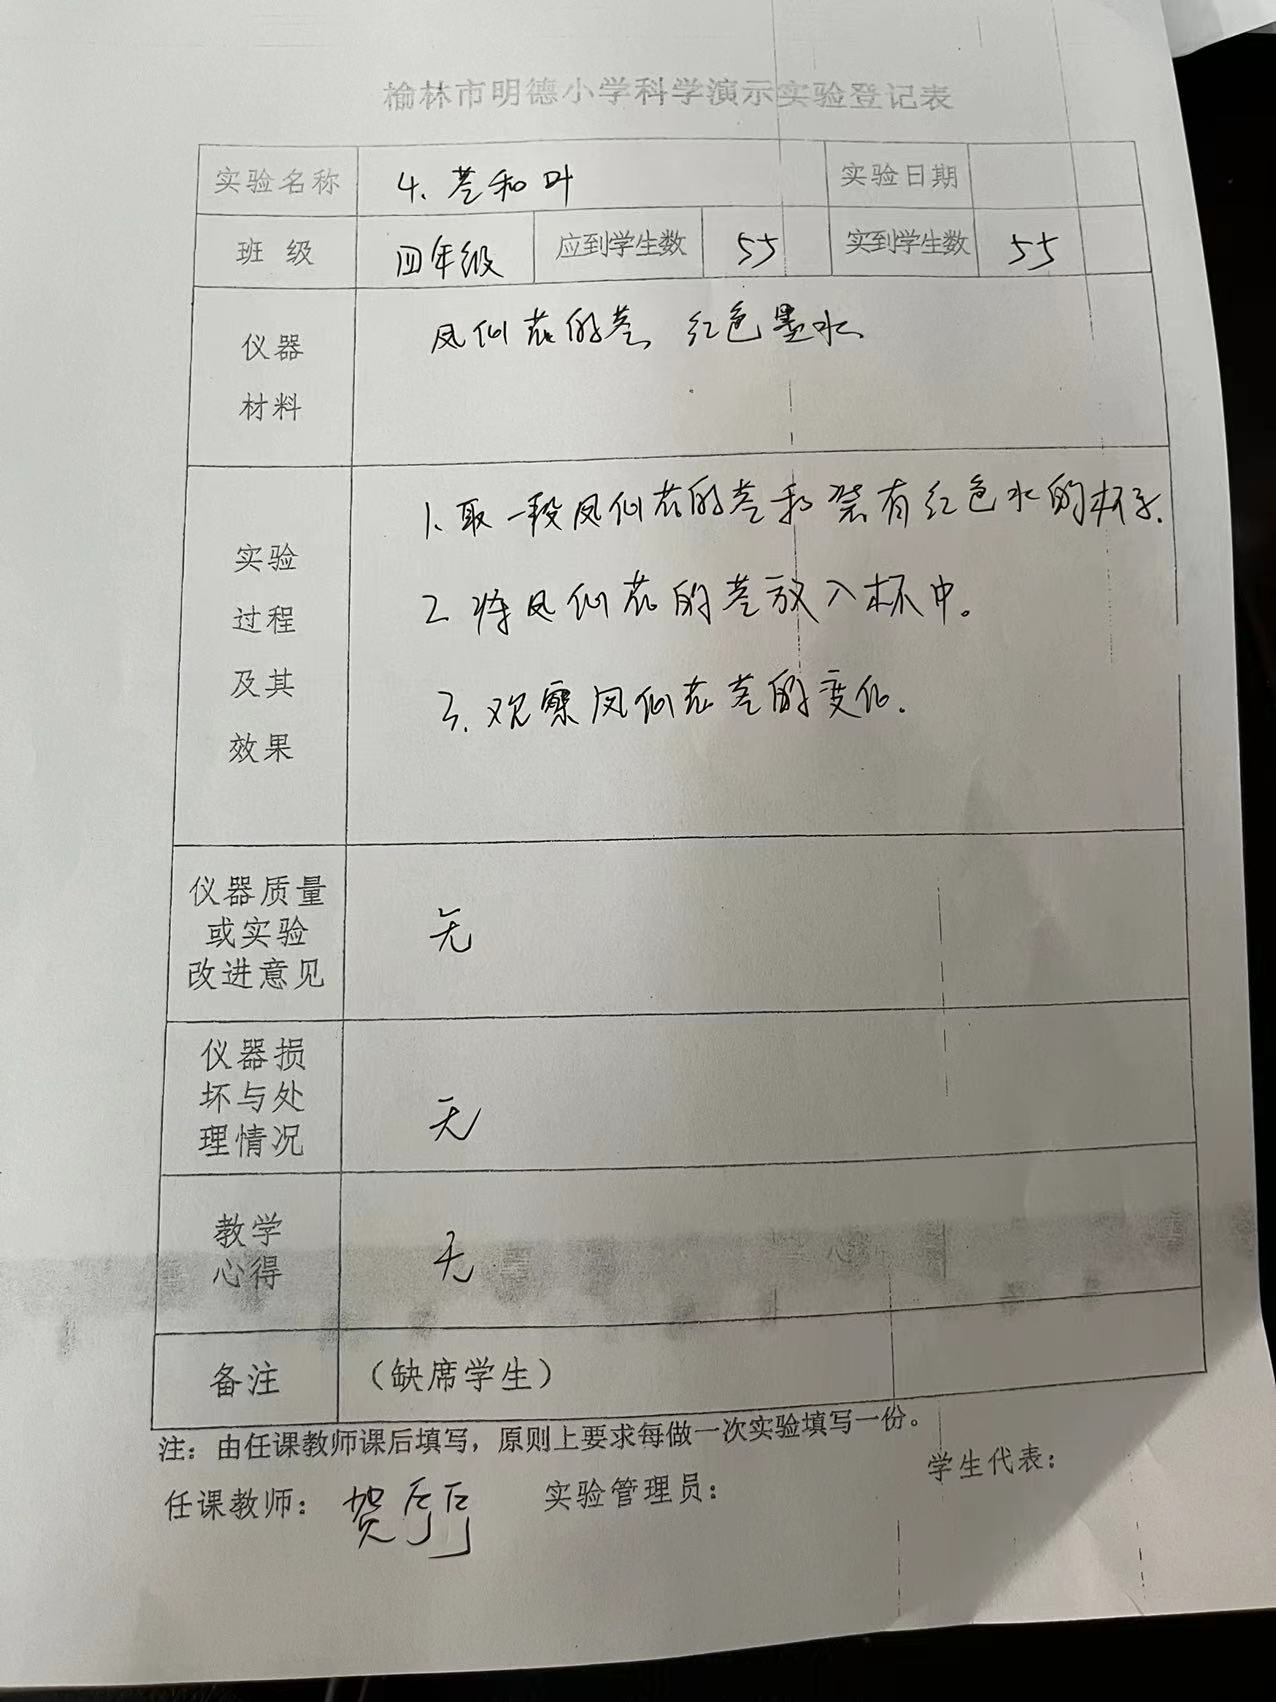 榆林市明德小学科学演示实验登记表
实验名称 4、茎和叶 实验日期
班 级 四年级 应到学生数 55 实到学生数 55
仪器
材料
凤仙花的茎、红色墨水
实验
过程
及其
效果
1、取一段凤仙花的茎和装有红色水的杯子.
2. 将凤仙花的茎放入杯中。
3. 观察凤仙花茎的变化.
仪器质量
或实验
改进意见
无
仪器损
坏与处
理情况
无
教学
心得
无
备注 （缺席学生）
注：由任课教师课后填写，原则上要求每做一次实验填写一份。
任课教师： 贺 实验管理员： 学生代表：